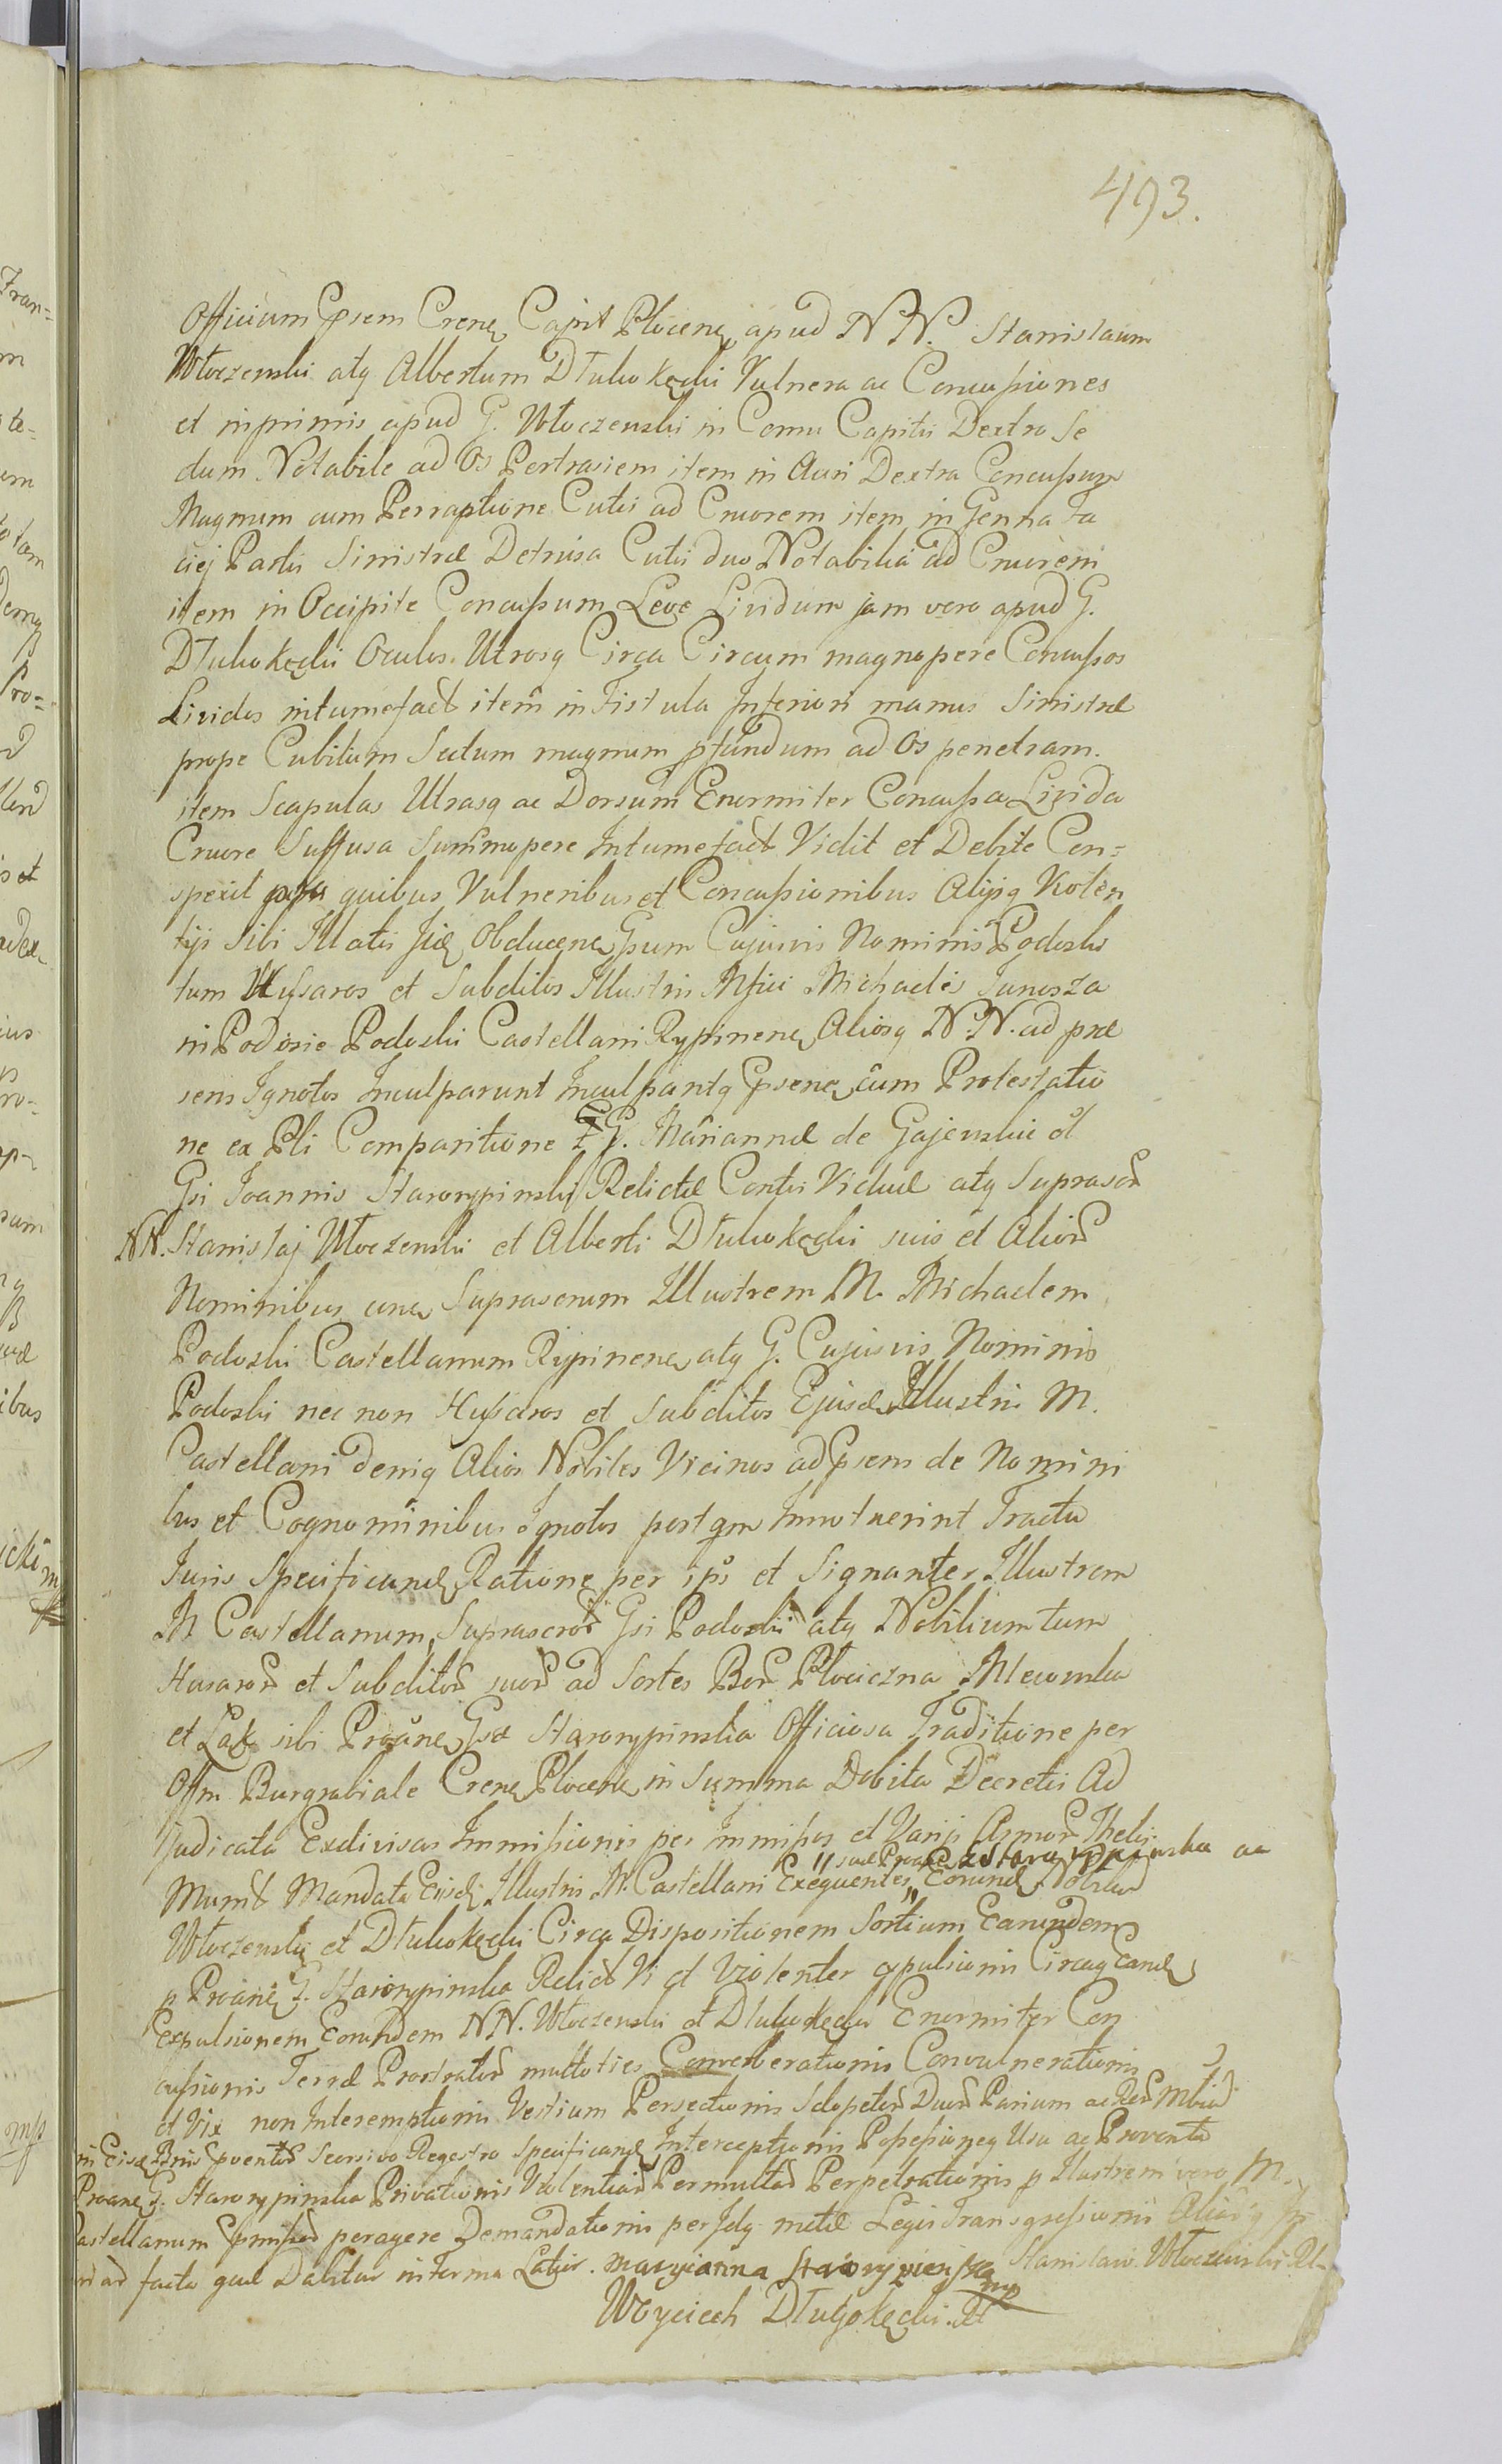 493.
Officium Prsens Crense Capit Plocense apud NN. Stanislaum
Włoczewski atq Albertum Dłuhokęcki Vulnera ac Concussiones
et inprimis apud G. Włoczewski in Cornu Capitis Dextro Se
dum Notabile ad Os Pertrasiens item in Auri Dextra Concussum
Magnum cum Perruptione Cutis ad Cruorem item in Genna Fa
ciej Partis Sinistræ Detrusa Cutis duo Notabilia ad Cruorem
item in Occipite Concussum Leve Lividum jam vero apud G.
Dłuhokęcki Oculos Utrosq Circa Circum magnopere Concussos
Lividos intumefact item in Fistula Inferiori manus Sinistræ
prope Cubitum Sectum magnum pfundum ad Os penetrans.
item Scapulas Utrasq ac Dorsum Enormiter Concussa Livida
Cruore Suffusa Summopere Intumefact Vidit et Debite Con=
spexit quibus Vulneribus et Concussionibus Alijsq Violen
tijs Sibi Illatis Obducens Gsum Cujusvis Nominis Podoski
tum Hussaros et Subditos Illustris Mfici Michaelis Junosza
in Podosie Podoski Castellani Rypinens Aliosq N.N. ad præ
sens Ignotos Inculparunt Inculpantq Prsens cum Protestatio
ne ex Pli Comparitione G. Mariannæ de Gajewskie ol
Gsi Joannis Starorypinski Relictæ Contis Viduæ atq Suprascr
NN. Stanislaj Włoczewski et Alberti Dłuhokęcki suis et Alior
Nominibus cona Suprascrum Illustrem M. Michaelem
Podoski Castellanum Rypinens atq G. Cujusvis Nominis
Podoski nec non Hussaros et Subditos Ejusd Illustris M.
Castellani deniq Alios Nobiles Vicinos ad Prsens de Nomini
bus et Cognominibus Ignotos postqm Innotuerint Tractu
Juris Specificand Ratione per ips et Signanter Illustrem
M Castellanum Suprascror Gsi Podoski atq Nobilium tum
Husaror et Subditor suor ad Sortes Bor Płociczna Mlewwska
et sibi Proane Gsæ Starorypinska Officiosa Traditione per
Offm Burgrabiale Crense Plocense in Summa Debita Decretis Ad
judicata Exdivisas Immissionis per Immissos et Varijs Armor Thelis
sæ Proane Starorypinska ac
Munit Mandata Eisdj Illustris M. Castellani Exequentes Eorund Nobiliu
Włoczewski et Dłuhokęcki Circa Dispositionem Sortium Earundem
p Proane G. Starorypinska Relict Vi et Violenter expulsionis Circaq Eand
Expulsionem Eorundem NN. Włoczewski et Dłuhokęcki Enormiter Con
cussionis Terræ Prostrator multoties Conveberationis Convulnerationis
et Vix non Interemptionis Vestium Persectionis Sclopetor Duor Parium ac Rer Mbiu
in Eisd Bnis pventor Seorsivo Regestro Specificand Interceptionis Possessioneq Usu ac Proventu
Proane G. Starorypinska Privationis Violentiar Permultar Perpetrationis p Ilustrem vero M.
Castellanum pmissor peragere Demandationis per Idq metæ Legis Transgressionis
ad facta quæ Dabitur in Terma Latius. Maryianna Starorypienska mp Stanisław Włoczewski
Woyciech Dłuhokęcki